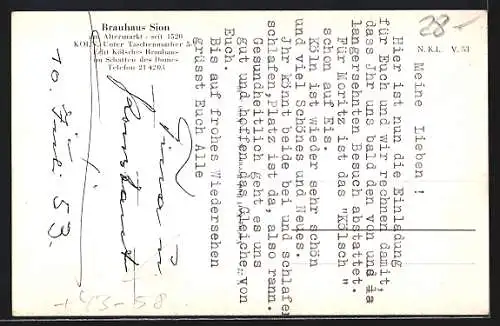 Brauhaus Sion
am Altermarkt · seit 1520
KÖLN, Unter Taschenmacher 5
Echt Kölsches Brauhaus
im Schatten des Domes
Telefon 21 4203
N. K. I. V. 53
28-
Meine Lieben !
Hier ist nun die Einladung
für Euch und wir rechnen damit,
dass Jhr uns bald den von und a
langersehnten Besuch abstattet.
Für Moritz ist das "Kölsch "
schon auf Eis.
Köln ist wieder sehr schön
und viel Schönes und Neues.
Jhr könnt beide bei und schlafen
schlafen,Platz ist da, also rann.
Gesundheitlich geht es uns
gut und hoffen das Gleiche von
Euch.
Bis auf frohes Wiedersehen
grüsst Euch Alle
10. 53.
-143-58